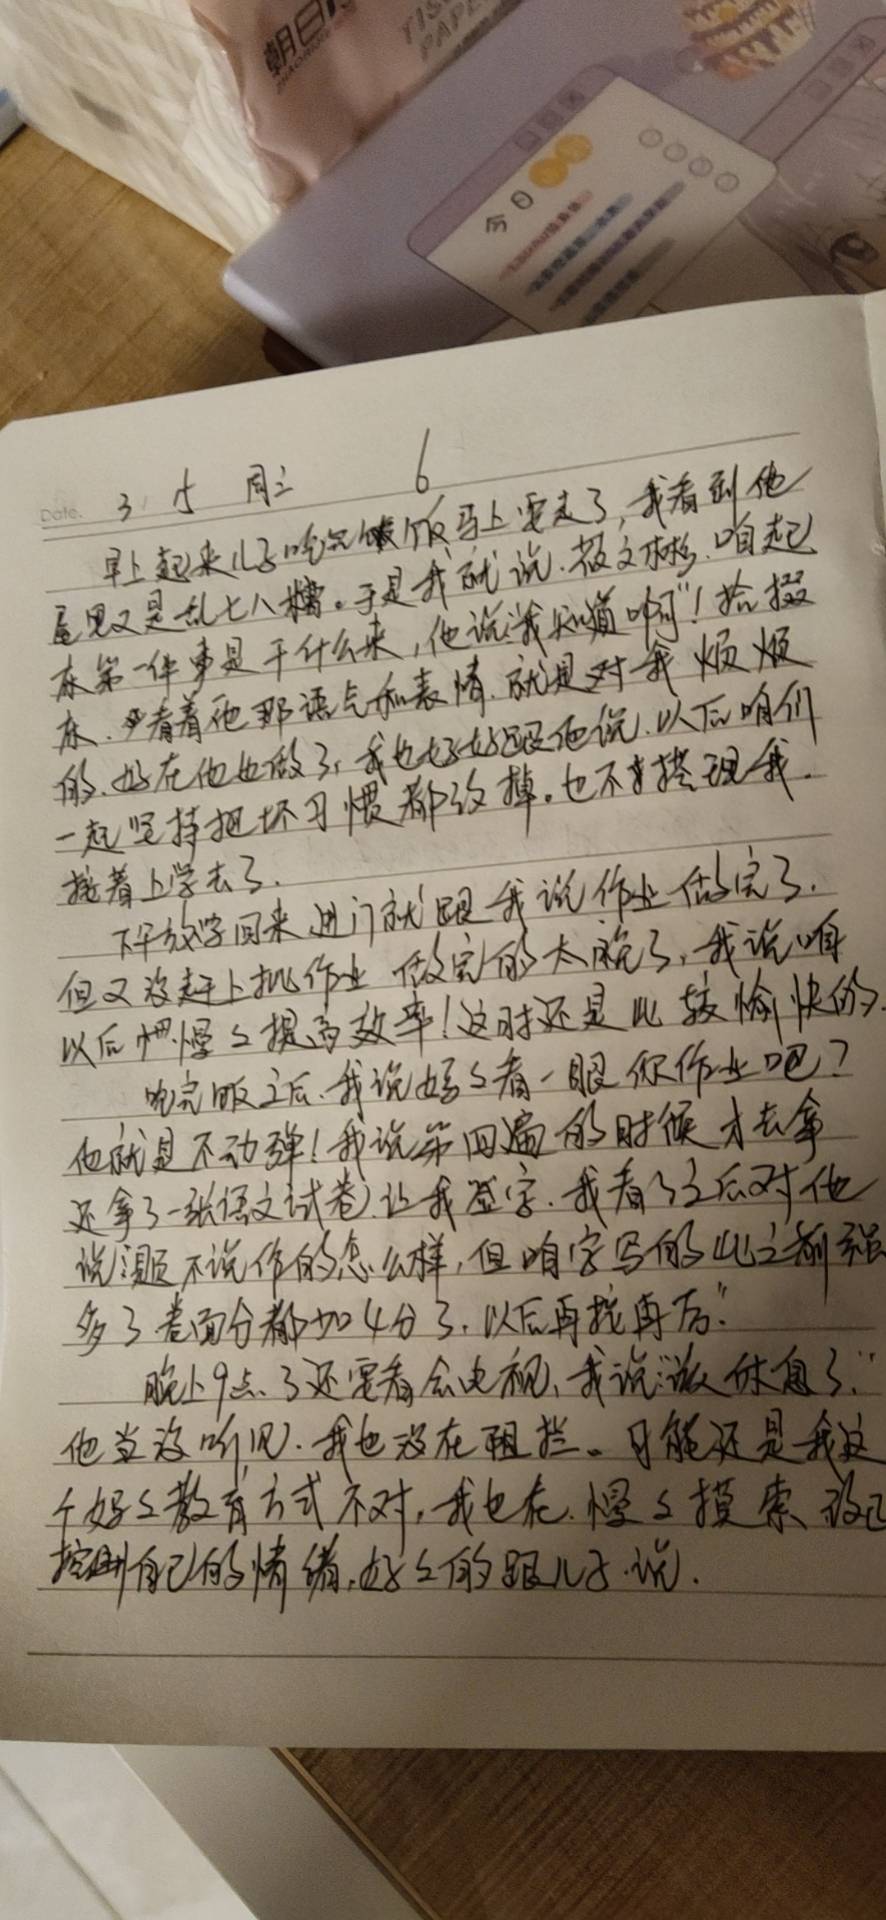 朝日
ZHAORI
TISSUE
PAPER
今日
Date. 3 15 周三 6
早上起来儿子吃完饭马上要走了,我看到他
屋里又是乱七八糟。于是我就说.在文彬.咱起
床第一件事是干什么来,他说:“我知道啊”!拾掇
床.看着他那语气和表情.就是对我烦烦
的.好在他也做了,我也好好跟他说.以后咱们
一起坚持把坏习惯都改掉。也不搭理我.
接着上学去了.
下午放学回来进门就跟我说作业做完了.
但又没赶上批作业 做完的太晚了,我说咱
以后慢々提高效率!这时还是比较愉快的.
吃完饭之后.我说妈々看一眼你作业吧?
他就是不动弹!我说第四遍的时候才去拿
还拿了一张语文试卷让我签字.我看了之后对他
说:“题不说作的怎么样,但咱字写的比之前强
多了卷面分都加4分了.以后再接再厉.”
晚上9点了还要看会电视,我说:“该休息了.”
他当没听见.我也没在阻拦。可能还是我这
个妈々教育方式不对,我也在.慢々摸索
控制自己的情绪.好々的跟儿子说.